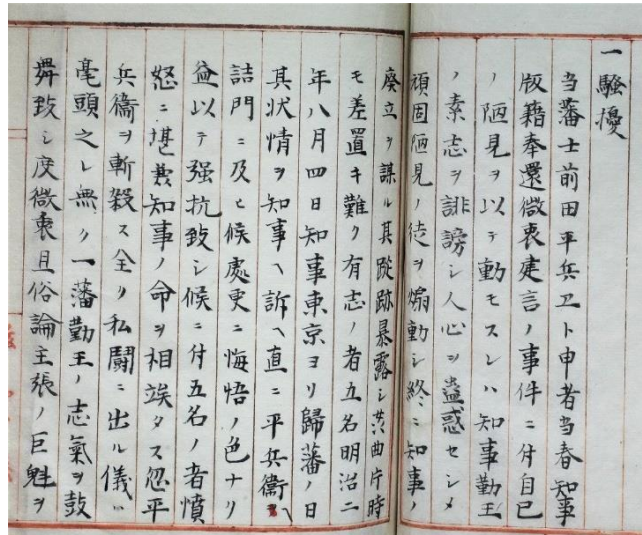 一騒擾
当藩士前田平兵ヱト申者当春知事
版籍奉還微衷建言ノ事件ニ付自已
ノ陋見ヲ以テ動モスレハ知事勤王
ノ素志ヲ誹謗シ人心ヲ蠱惑セシメ
頑固陋見ノ徒ヲ煽動シ終ニ知事ノ
廃立ヲ謀ル其蹤跡暴露シ片時
モ差置キ難ク有志ノ者五名明治二
年八月四日知事東京ヨリ歸藩ノ日
其状情ヲ知事ヘ訴ヘ直ニ平兵衞
詰問ニ及ヒ候處更ニ悔悟ノ色ナク
益以テ强抗致シ候ニ付五名ノ者憤
怒ニ堪兼知事ノ命ヲ相竢タス忽平
兵衞ヲ斬殺ス全ク私闘ニ出ル儀ハ
毫頭之レ無ク一藩勤王ノ志氣ヲ鼓
舞致シ度微衷且俗論主張ノ巨魁ヲ